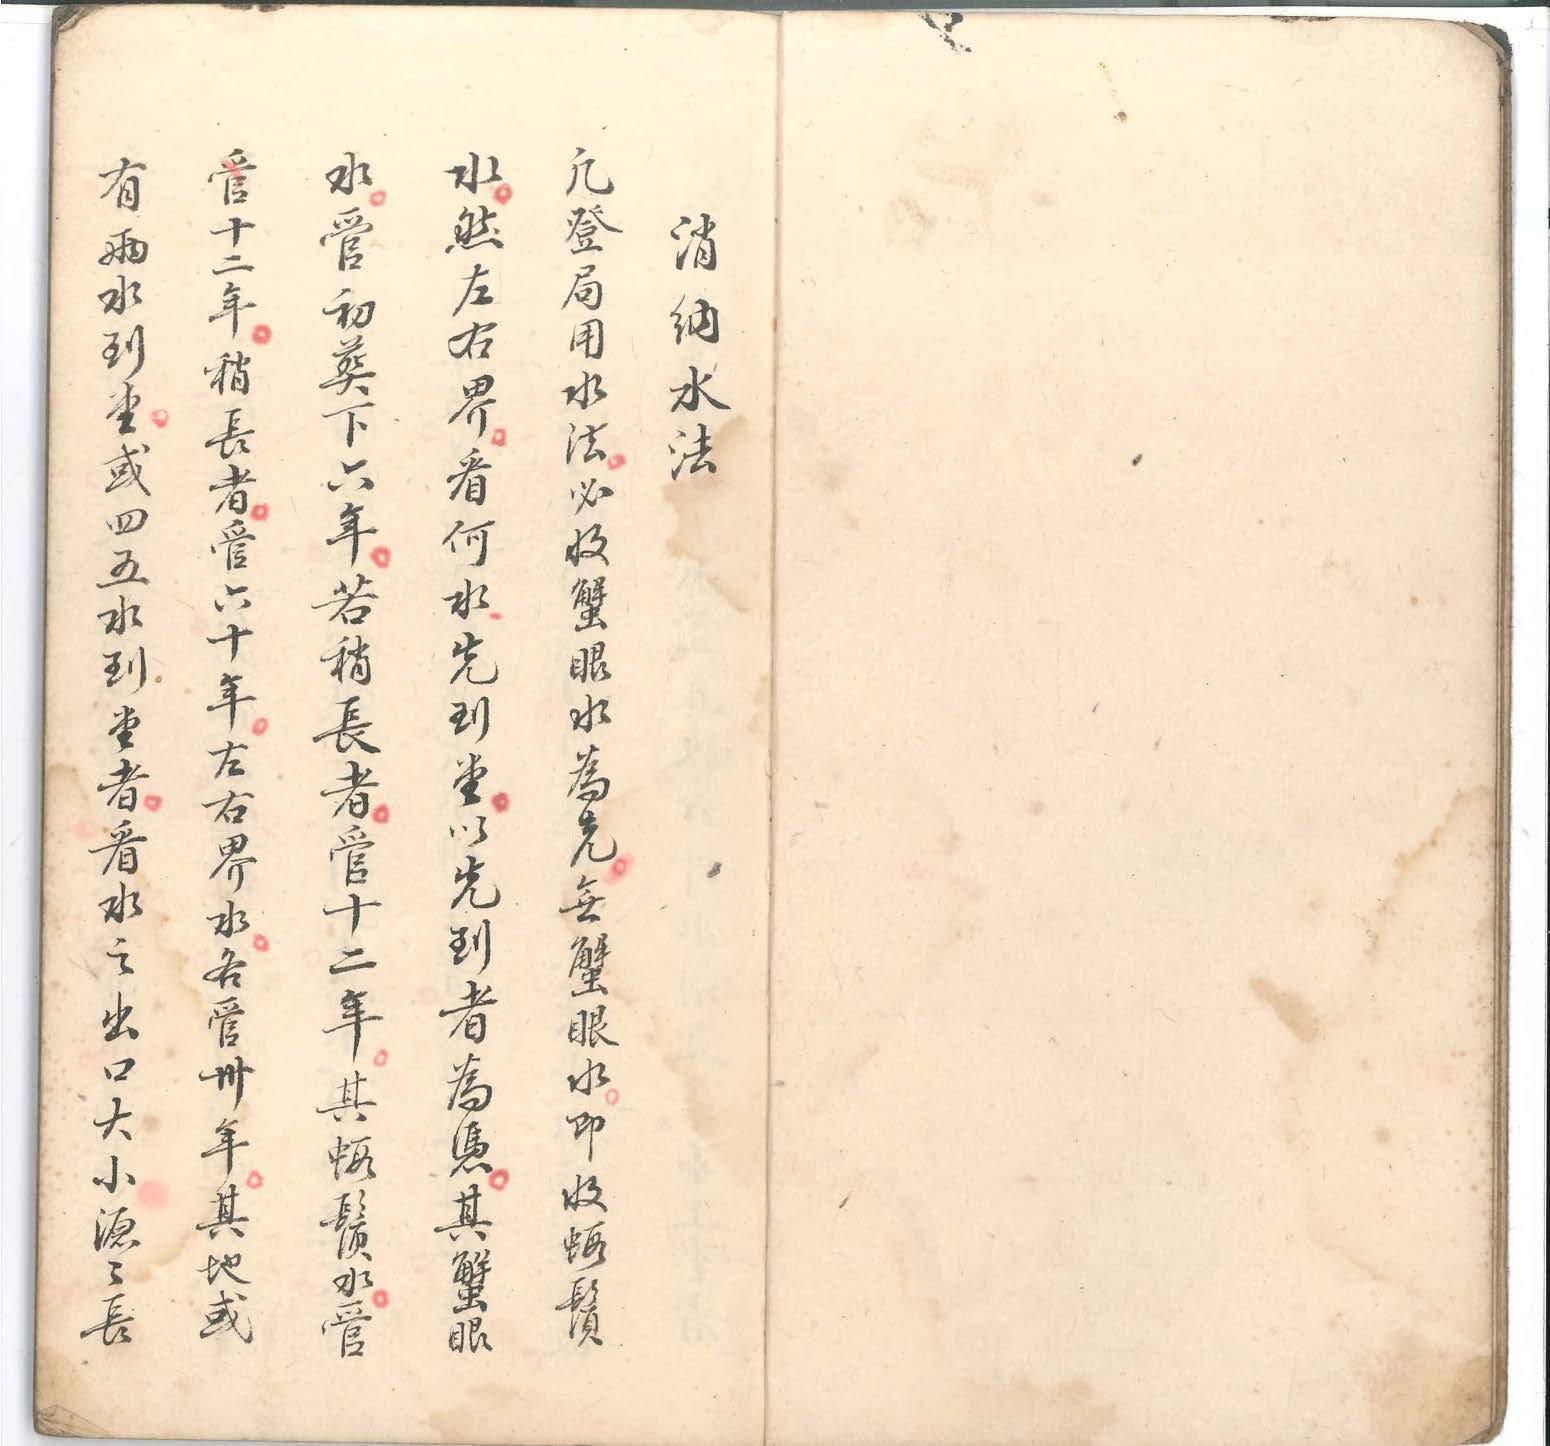 消納水法
凢登局用水法必收蟹眼水為先無蟹眼水即收蝦鬚
水然左右界看何水先到堂以先到者為憑其蟹眼
水管初葬下六年若稍長者管十二年其蝦鬚水管
管十二年稍長者管六十年左右界水各管卅年其地或
有兩水到堂或四五水到堂者看水之出口大小源之長